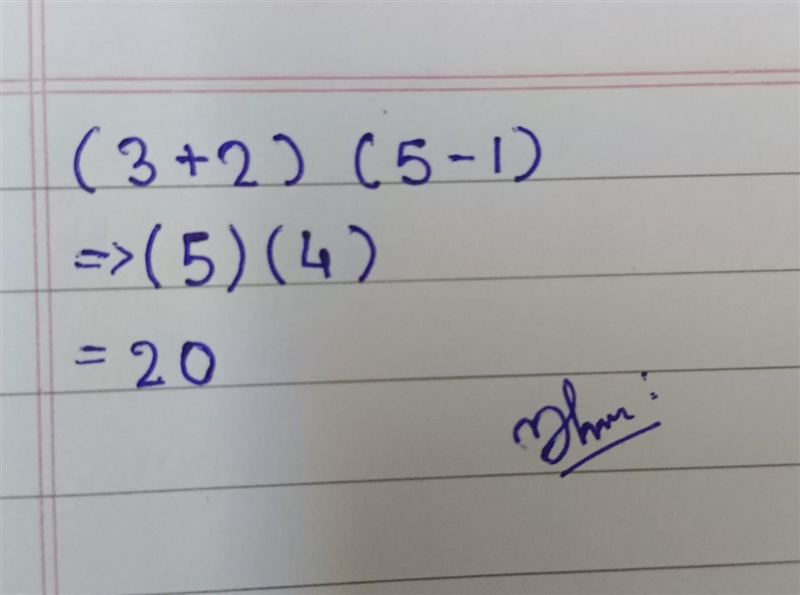 (3+2) (5-1)
=>(5)(4)
= 20